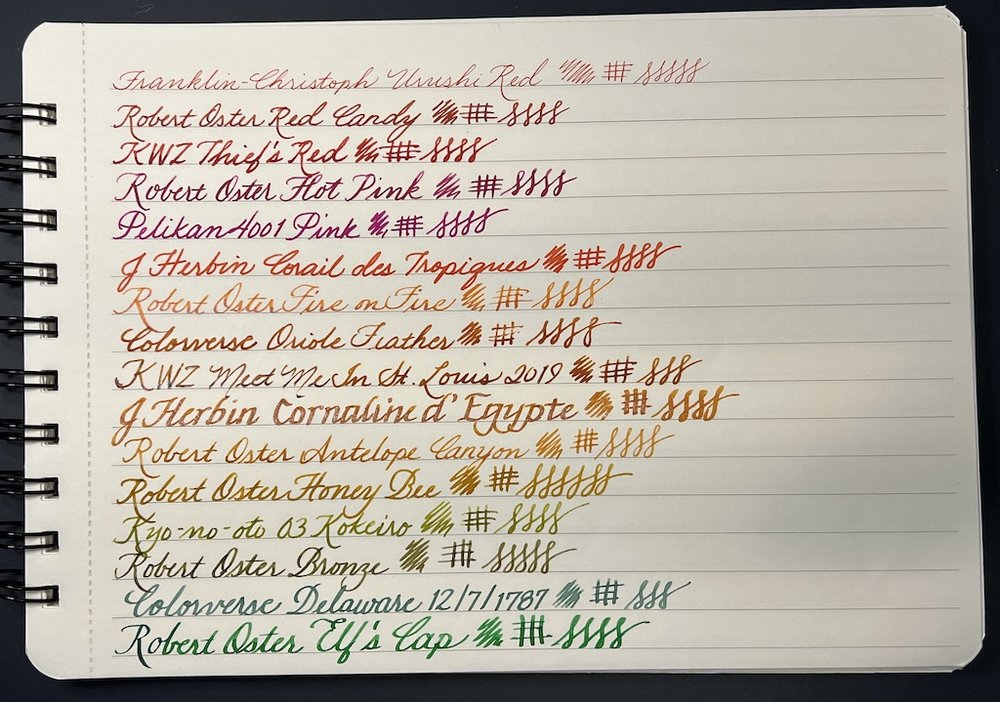 Franklin-Christoph Urushi Red
Robert Oster Red Candy
KWZ Thief's Red
Robert Oster Hot Pink
Pelikan 4001 Pink
J Herbin Corail des Tropiques
Robert Oster Fire on Fire
Colorverse Oriole Feather
KWZ Meet Me In St. Louis 2019
J Herbin Cornaline d'Egypte
Robert Oster Antelope Canyon
Robert Oster Honey Bee
Kyo-no-oto 03 Kokeiro
Robert Oster Bronze
Colorverse Delaware 12/7/1787
Robert Oster Elf's Cap